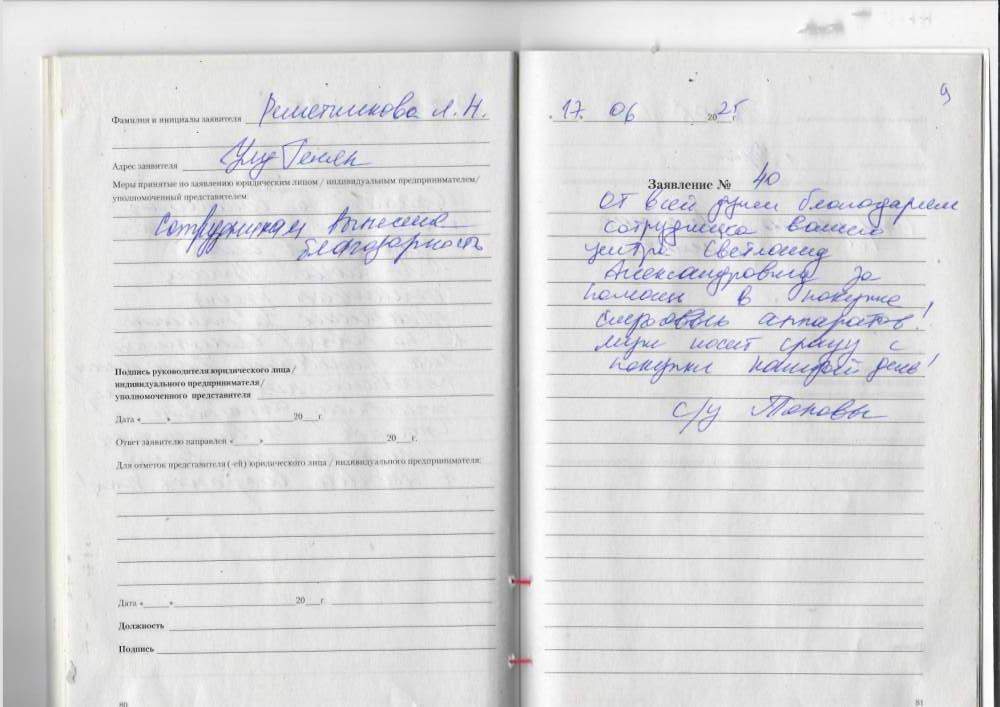 Фамилия и инициалы заявителя Л. Н.
Адрес заявителя
Меры принятые по заявлению юридическим лицом / индивидуальным предпринимателем/
уполномоченный представителем
Сотрудникам вынесена
благодарность
Подпись руководителя юридического лица /
индивидуального предпринимателя /
уполномоченного представителя
Дата «____»____20___г.
Ответ заявителю направлен «____»____20___г.
Для отметок представителя (-ей) юридического лица / индивидуального предпринимателя:
Дата «____»____20___г
Должность
Подпись
80
9
17. 06 2025г.
Заявление № 40
От всей души благодарим
сотрудника вашего
центра Светлану
Александровну за
помощь в покупке
слуховых аппаратов!
Муж носит сразу с
покупки каждый день!
с/у
81